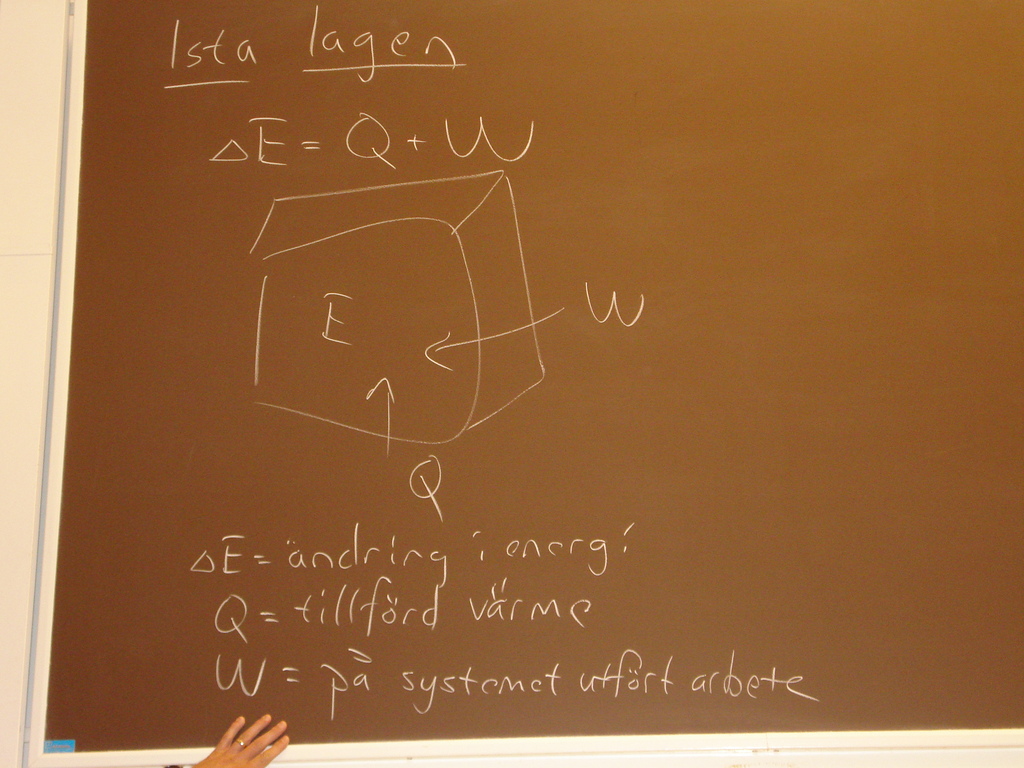 1sta lagen
ΔE = Q + W
E
W
Q
ΔE = ändring i energi
Q = tillförd värme
W = på systemet utfört arbete